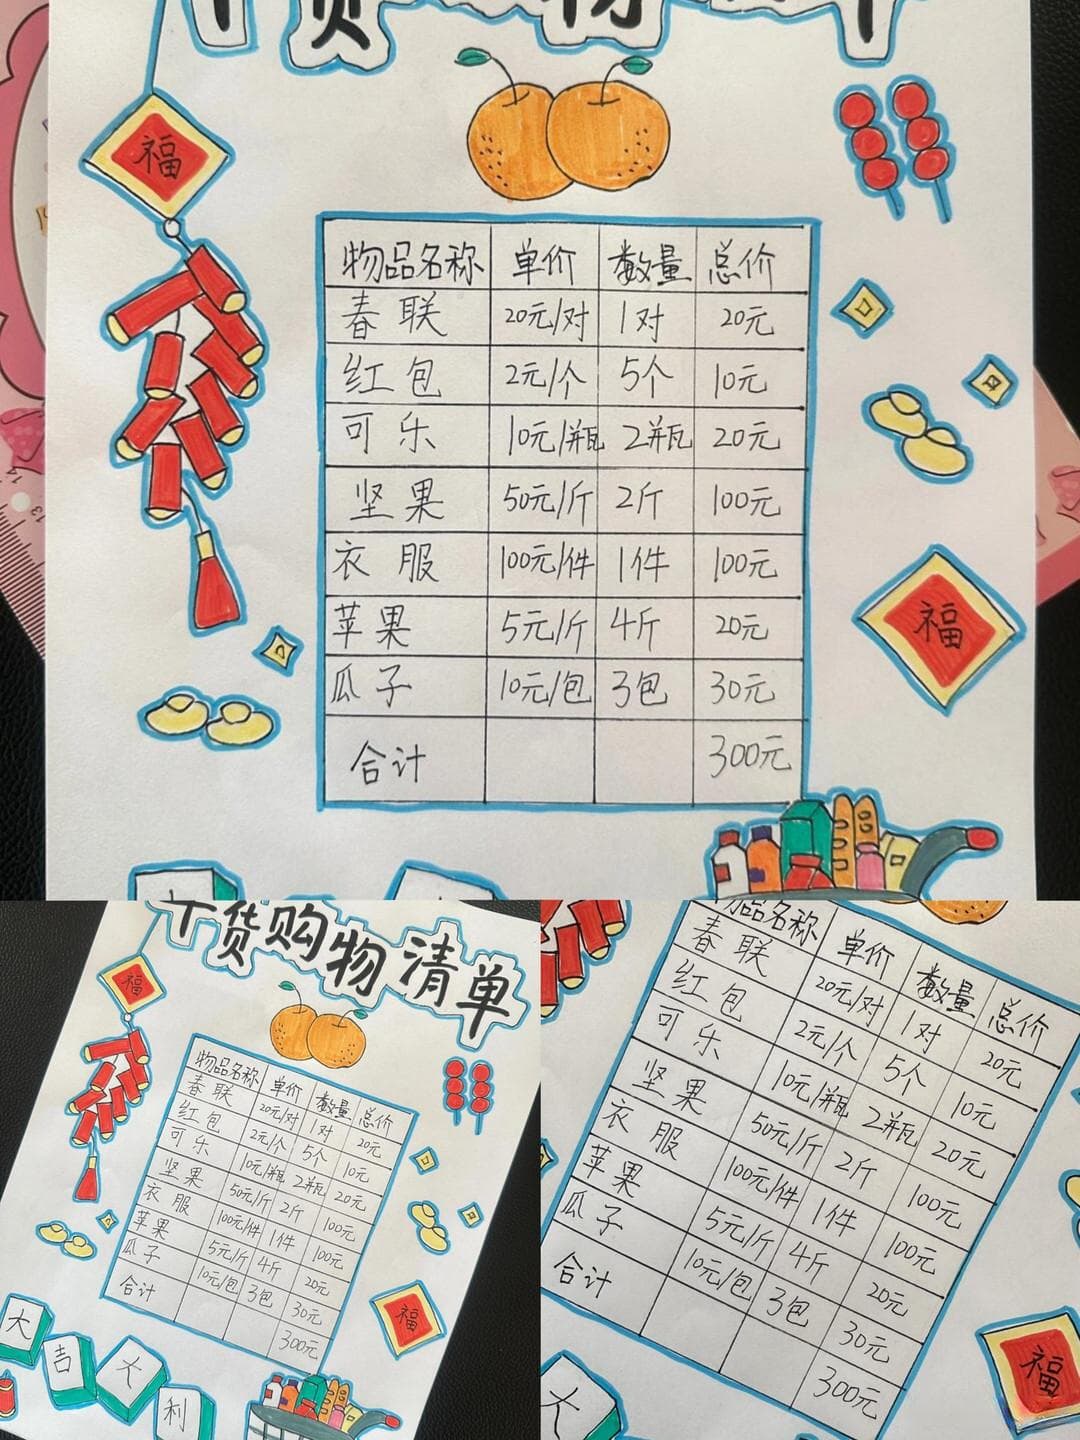 福
物品名称 单价 数量 总价
春联 20元/对 1对 20元
红包 2元/个 5个 10元
可乐 10元/瓶 2瓶 20元
坚果 50元/斤 2斤 100元
衣服 100元/件 1件 100元
苹果 5元/斤 4斤 20元
瓜子 10元/包 3包 30元
合计 300元
福
货购物清单
福
物品名称 单价 数量 总价
春联 20元/对 1对 20元
红包 2元/个 5个 10元
可乐 10元/瓶 2瓶 20元
坚果 50元/斤 2斤 100元
衣服 100元/件 1件 100元
苹果 5元/斤 4斤 20元
瓜子 10元/包 3包 30元
合计 300元
福
大吉大利
物品名称 单价 数量 总价
春联 20元/对 1对 20元
红包 2元/个 5个 10元
可乐 10元/瓶 2瓶 20元
坚果 50元/斤 2斤 100元
衣服 100元/件 1件 100元
苹果 5元/斤 4斤 20元
瓜子 10元/包 3包 30元
合计 300元
福
大